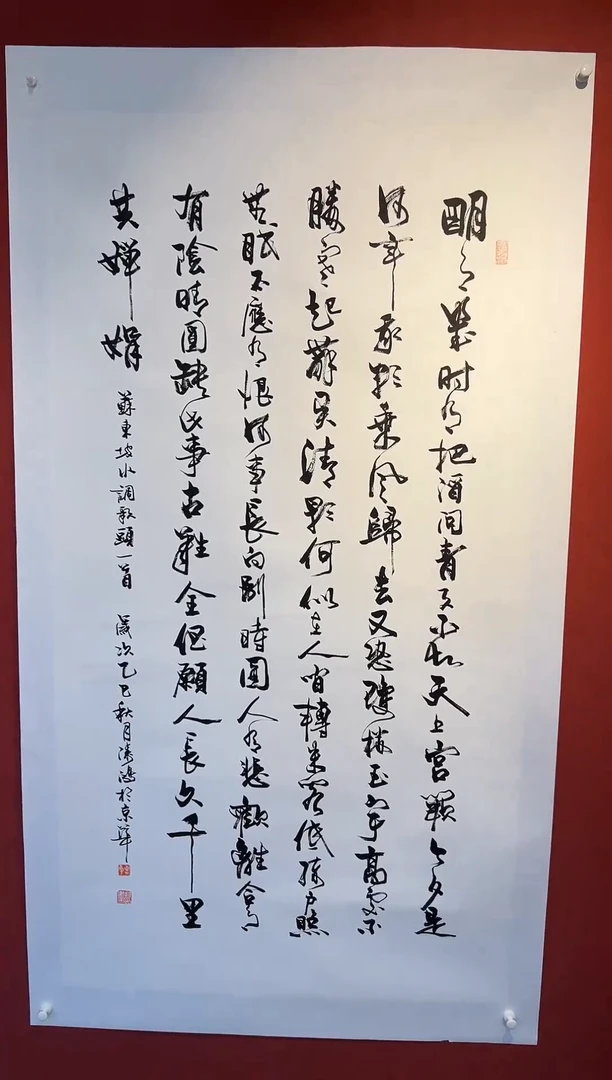 明月幾時有把酒問青天不知天上宮闕今夕是
何年我欲乘風歸去又恐瓊樓玉宇高處不
勝寒起舞弄清影何似在人間轉朱閣低綺戶照
無眠不應有恨何事長向別時圓人有悲歡離合月
有陰晴圓缺此事古難全但願人長久千里
共嬋娟
蘇東坡水調歌頭一首 歲次乙巳秋月鴻於京華